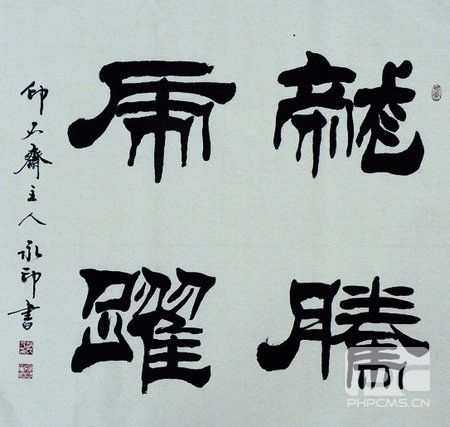 龍騰
虎躍
齋主人
印書
PHPCMS.CN